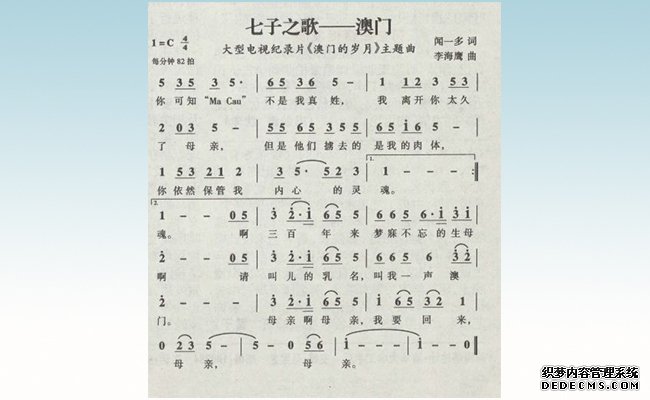 七子之歌——澳门
1=C 4/4
大型电视纪录片《澳门的岁月》主题曲
闻一多 词
每分钟 82 拍
李海鹰 曲
5 35 35· | 65 36 5 - | 65 35 665
你可知“Ma Cau” 不是我真姓， 我离开你太久
2 03 5 - | 65 65 355 | 65 i65 -
了母亲， 但是他们掳去的是我的肉体，
1.
153 212 | 35· 523 | 1 - - - :‖
你依然保管我 内心的灵魂。
2.
1 - - 05 | 3 2·i 655 | 665 60 i3i
魂。 啊 三百年来梦寐不忘的生母
2 - - 05 | 3 2·i 655 | 665 6633
啊 请 叫儿的乳名，叫我一声澳
2 - - - | 3 2·i 655 | i65 321
门。 母亲啊母亲，我要回来，
0 23 5 - | 5 - 0 56 | i - - - | i - - 0 ‖
母亲， 母亲。
织梦内容管理系统
DEDECMS.COM